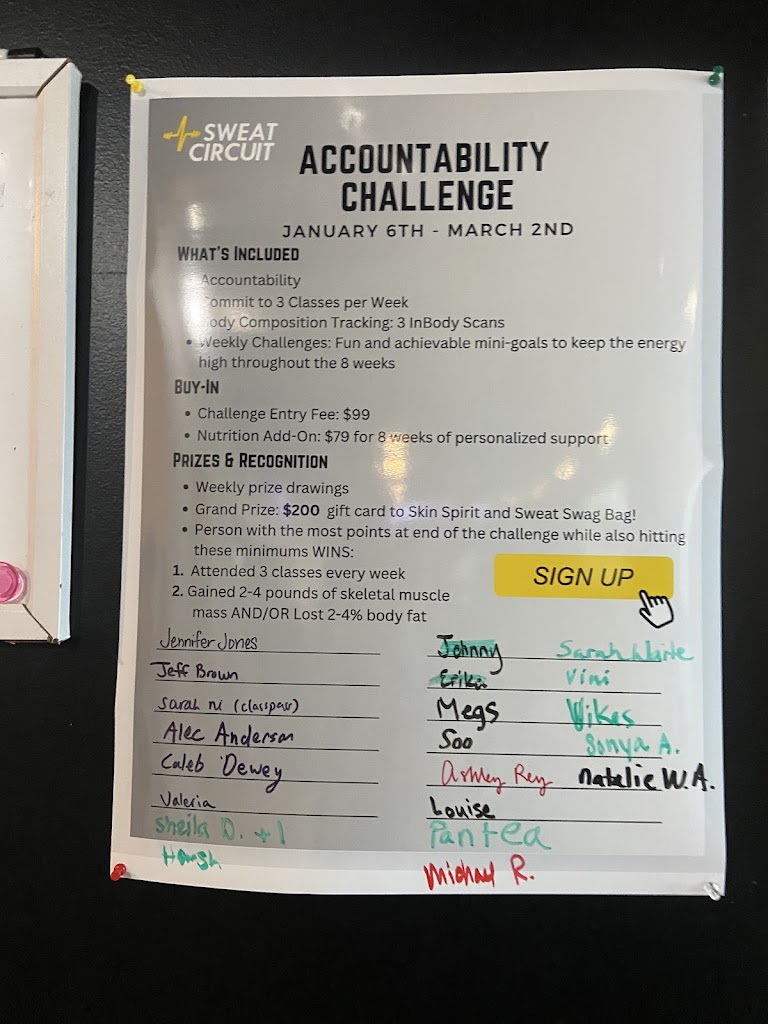 SWEAT
CIRCUIT
ACCOUNTABILITY
CHALLENGE
JANUARY 6TH - MARCH 2ND
WHAT'S INCLUDED
Accountability
Commit to 3 Classes per Week
Body Composition Tracking: 3 InBody Scans
• Weekly Challenges: Fun and achievable mini-goals to keep the energy
high throughout the 8 weeks
BUY-IN
• Challenge Entry Fee: $99
• Nutrition Add-On: $79 for 8 weeks of personalized support
PRIZES & RECOGNITION
• Weekly prize drawings
• Grand Prize: $200 gift card to Skin Spirit and Sweat Swag Bag!
• Person with the most points at end of the challenge while also hitting
these minimums WINS:
1. Attended 3 classes every week
2. Gained 2-4 pounds of skeletal muscle
mass AND/OR Lost 2-4% body fat
SIGN UP
Jennifer Jones
Jeff Brown
Sarah ni (classpass)
Alec Anderson
Caleb Dewey
Valeria
Sheila D. +1
Harsh
Johnny
Erika
Megs
Soo
Ashley Rey
Louise
Pantea
Michael R.
Sarah
Vini
Vikas
Sonya A.
natalie W.A.